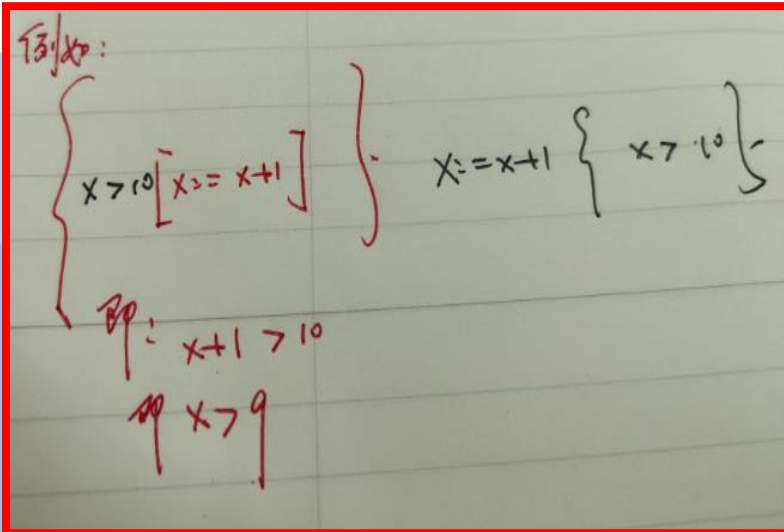 例如:
{ x>10[x:=x+1] } x:=x+1 { x>10 }
即: x+1 >10
即 x>9